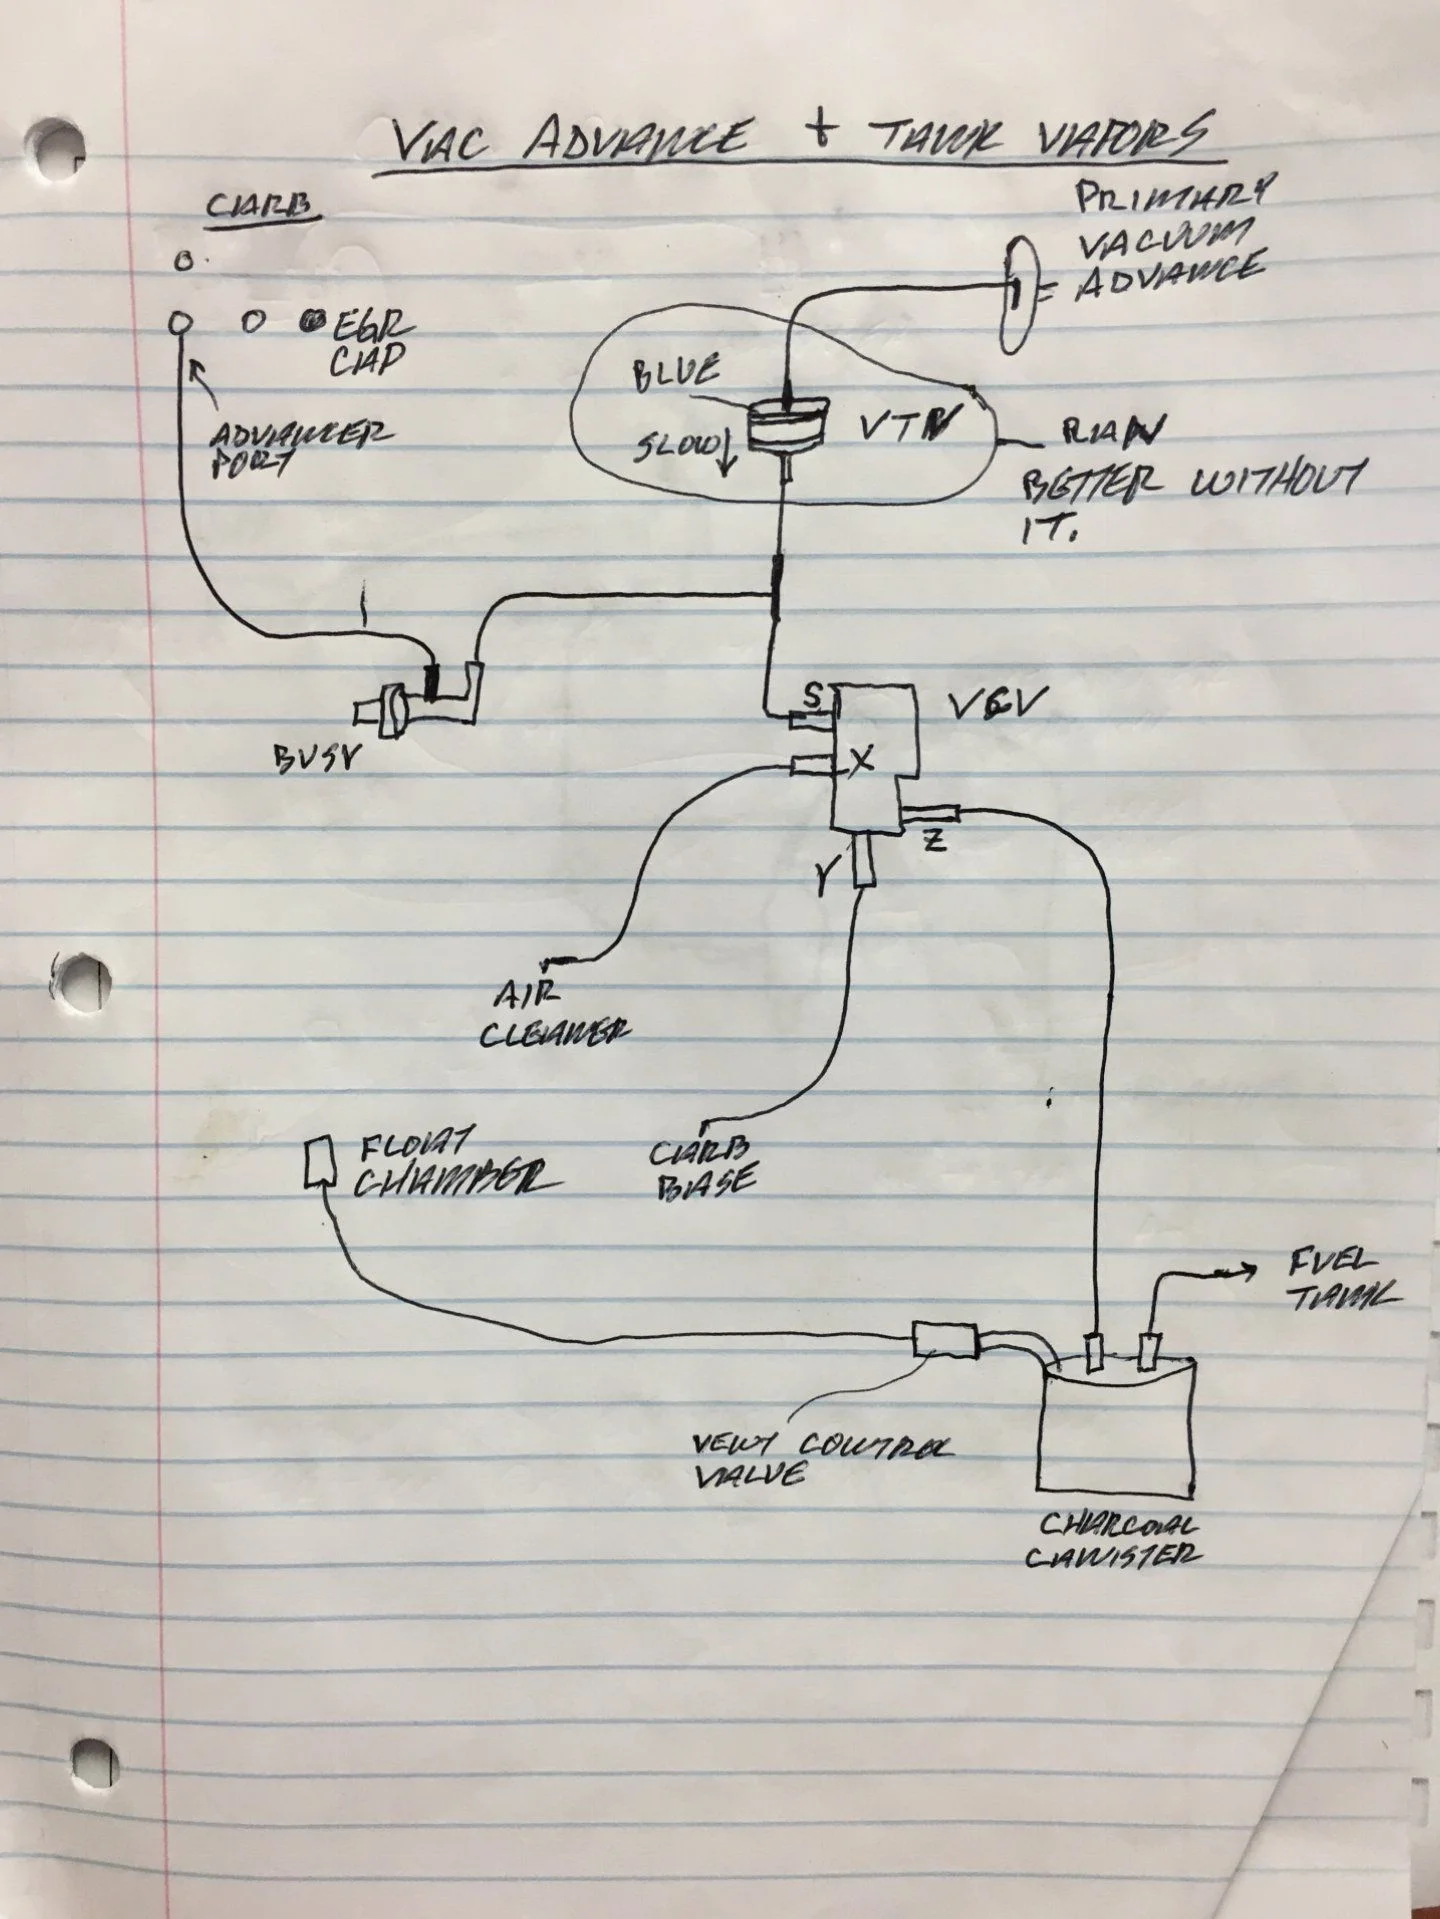 VAC ADVANCE + TANK VAPORS
CARB
PRIMARY
VACUUM
ADVANCE
EGR
CAP
BLUE
VTV
SLOW
ADVANCER
PORT
RAN
BETTER WITHOUT
IT.
S
VCV
BVSV
X
Z
Y
AIR
CLEANER
FLOAT
CHAMBER
CARB
BASE
FUEL
TANK
VENT CONTROL
VALVE
CHARCOAL
CANISTER